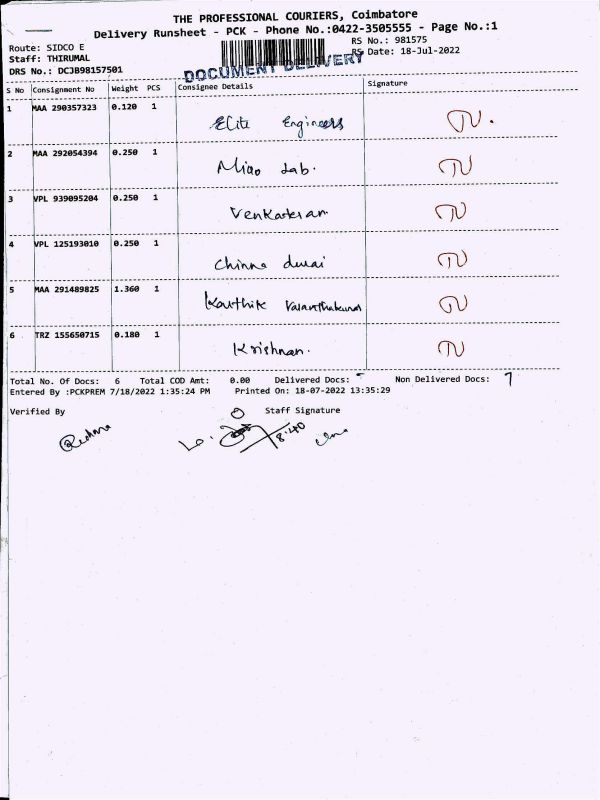 THE PROFESSIONAL COURIERS, Coimbatore
Delivery Runsheet - PCK - Phone No.:0422-3505555 - Page No.:1
Route: SIDCO E
RS No.: 981575
Staff: THIRUMAL
RS Date: 18-Jul-2022
DRS No.: DCJB98157501
DOCUMENT DELIVERY
S No Consignment No Weight PCS Consignee Details Signature
1 MAA 290357323 0.120 1 Elite Engineers
2 MAA 292054394 0.250 1 Lab.
3 VPL 939095204 0.250 1
4 VPL 125193010 0.250 1 Chinna durai
5 MAA 291489825 1.360 1 Karthik
6 TRZ 155650715 0.180 1 Krishnan.
Total No. Of Docs: 6 Total COD Amt: 0.00 Delivered Docs: Non Delivered Docs:
Entered By :PCKPREM 7/18/2022 1:35:24 PM Printed On: 18-07-2022 13:35:29
Verified By Staff Signature
8.40